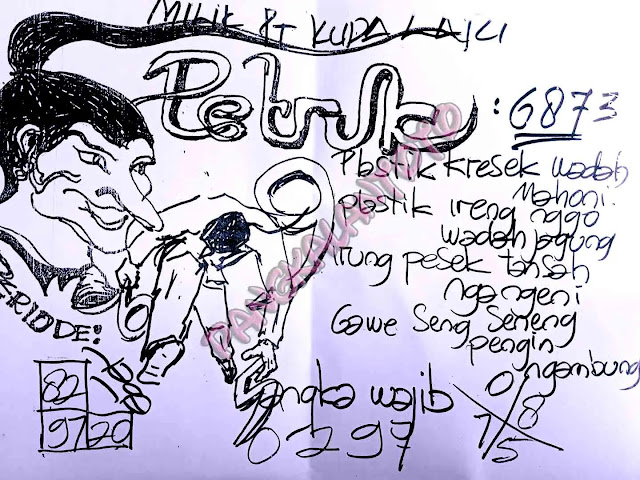 MILIK PT KUDA LAJU
Petruk : 6873
Plastik kresek wadah
Mahoni
Plastik ireng nggo
wadah jagung
Irung pesek tansah
ngangeni
Gawe Seng Seneng
pengin
ngambung
PERIODE:
82
97 20
angka wajib
0297
0/8
7/5
PANGKALANTOTO